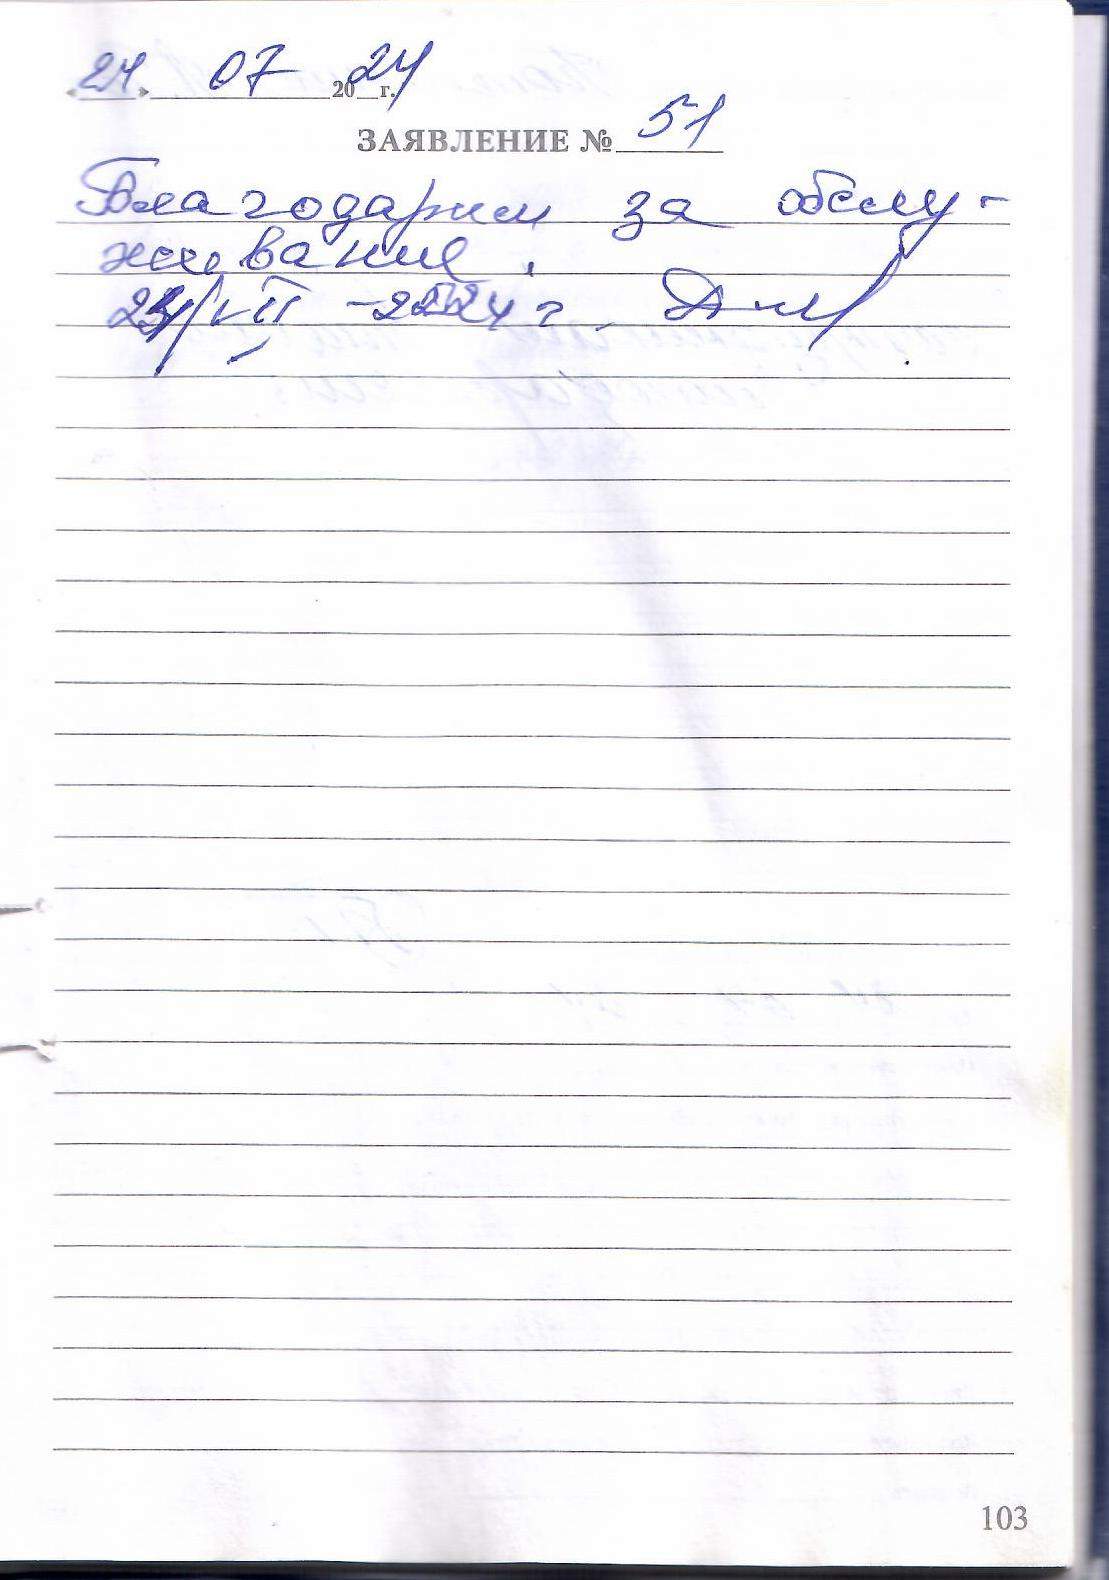 «24» 07 2024 г.
ЗАЯВЛЕНИЕ № 51
Благодарим за обслу-
живание.
24/VII - 2024 г.
103